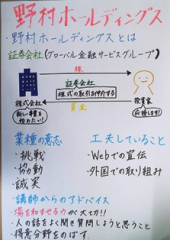 野村ホールディングス
・野村ホールディングスとは
証券会社(グローバル金融サービスグループ)
株
証券会社
株式の取引を仲介する
株式会社
投資家
新しい事を
始めたい!
応援します!
資金
業種の意志
・挑戦
・協働
・誠実
工夫していること
・Webでの宣伝
・外国での取り組み
講師からのアドバイス
・場を和ませる力が大切!!
・人の話をよく聞き質問しようと思うこと
・得意分野をのばす。